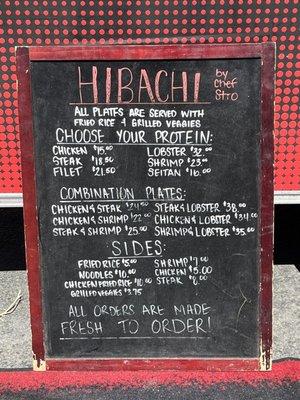 HIBACHI by Chef Stro
ALL PLATES ARE SERVED WITH
FRIED RICE + GRILLED VEGGIES
CHOOSE YOUR PROTEIN:
CHICKEN $15.00 LOBSTER $32.00
STEAK $18.50 SHRIMP $23.00
FILET $21.50 SEITAN $16.00
COMBINATION PLATES:
CHICKEN & STEAK $24.50 STEAK & LOBSTER $38.00
CHICKEN & SHRIMP $22.00 CHICKEN & LOBSTER $34.00
STEAK & SHRIMP $25.00 SHRIMP & LOBSTER $35.00
SIDES:
FRIED RICE $5.00 SHRIMP $7.00
NOODLES $10.00 CHICKEN $5.00
CHICKEN FRIED RICE $10.00 STEAK $8.00
GRILLED VEGGIES $3.75
ALL ORDERS ARE MADE
FRESH TO ORDER!